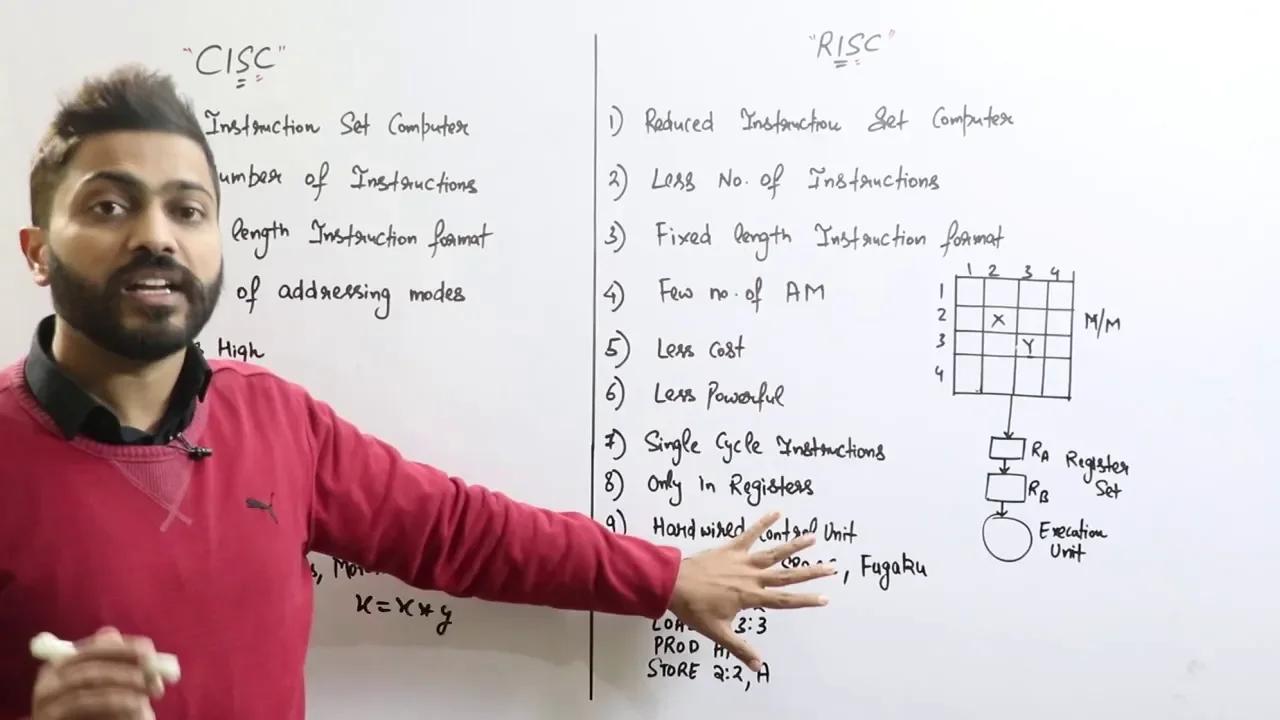 "CISC"
Instruction Set Computer
of Instructions
length Instruction format
of addressing modes
High
x = x * y
"RISC"
1) Reduced Instruction Set Computer
2) Less No. of Instructions
3) Fixed length Instruction format
4) Few no. of AM
5) Less Cost
6) Less Powerful
7) Single Cycle Instructions
8) Only in Registers
9) Hardwired Control Unit
, Fugaku
3:3
PROD
STORE 2:2, A
1 2 3 4
1
2 X M/M
3 Y
4
RA Register
Set
RB
Execution
Unit